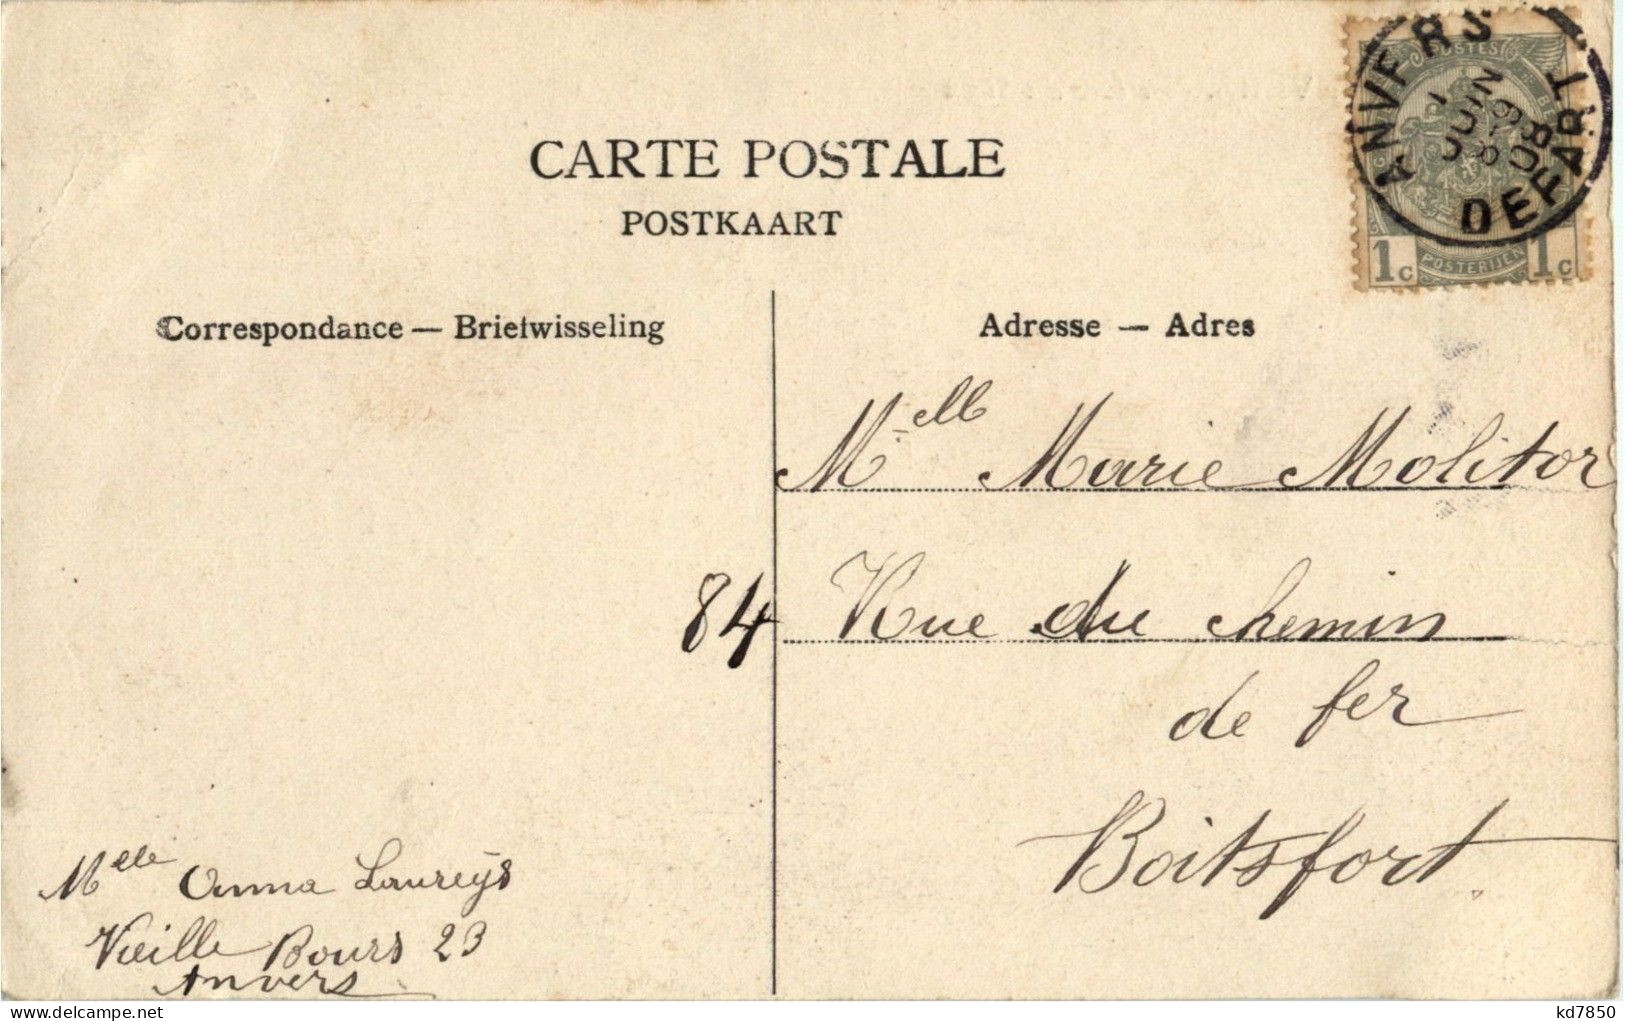 CARTE POSTALE
POSTKAART
ANVERS
1 JUIN
8
08
DEPART
POSTES
1c POSTERIJEN 1c
Correspondance — Briefwisseling
Adresse — Adres
Mlle Marie Molitor
84 Rue du chemin
de fer
Boitsfort
Melle Anna Laureÿs
Vieille Bours 23
Anvers
delcampe.net
kd7850